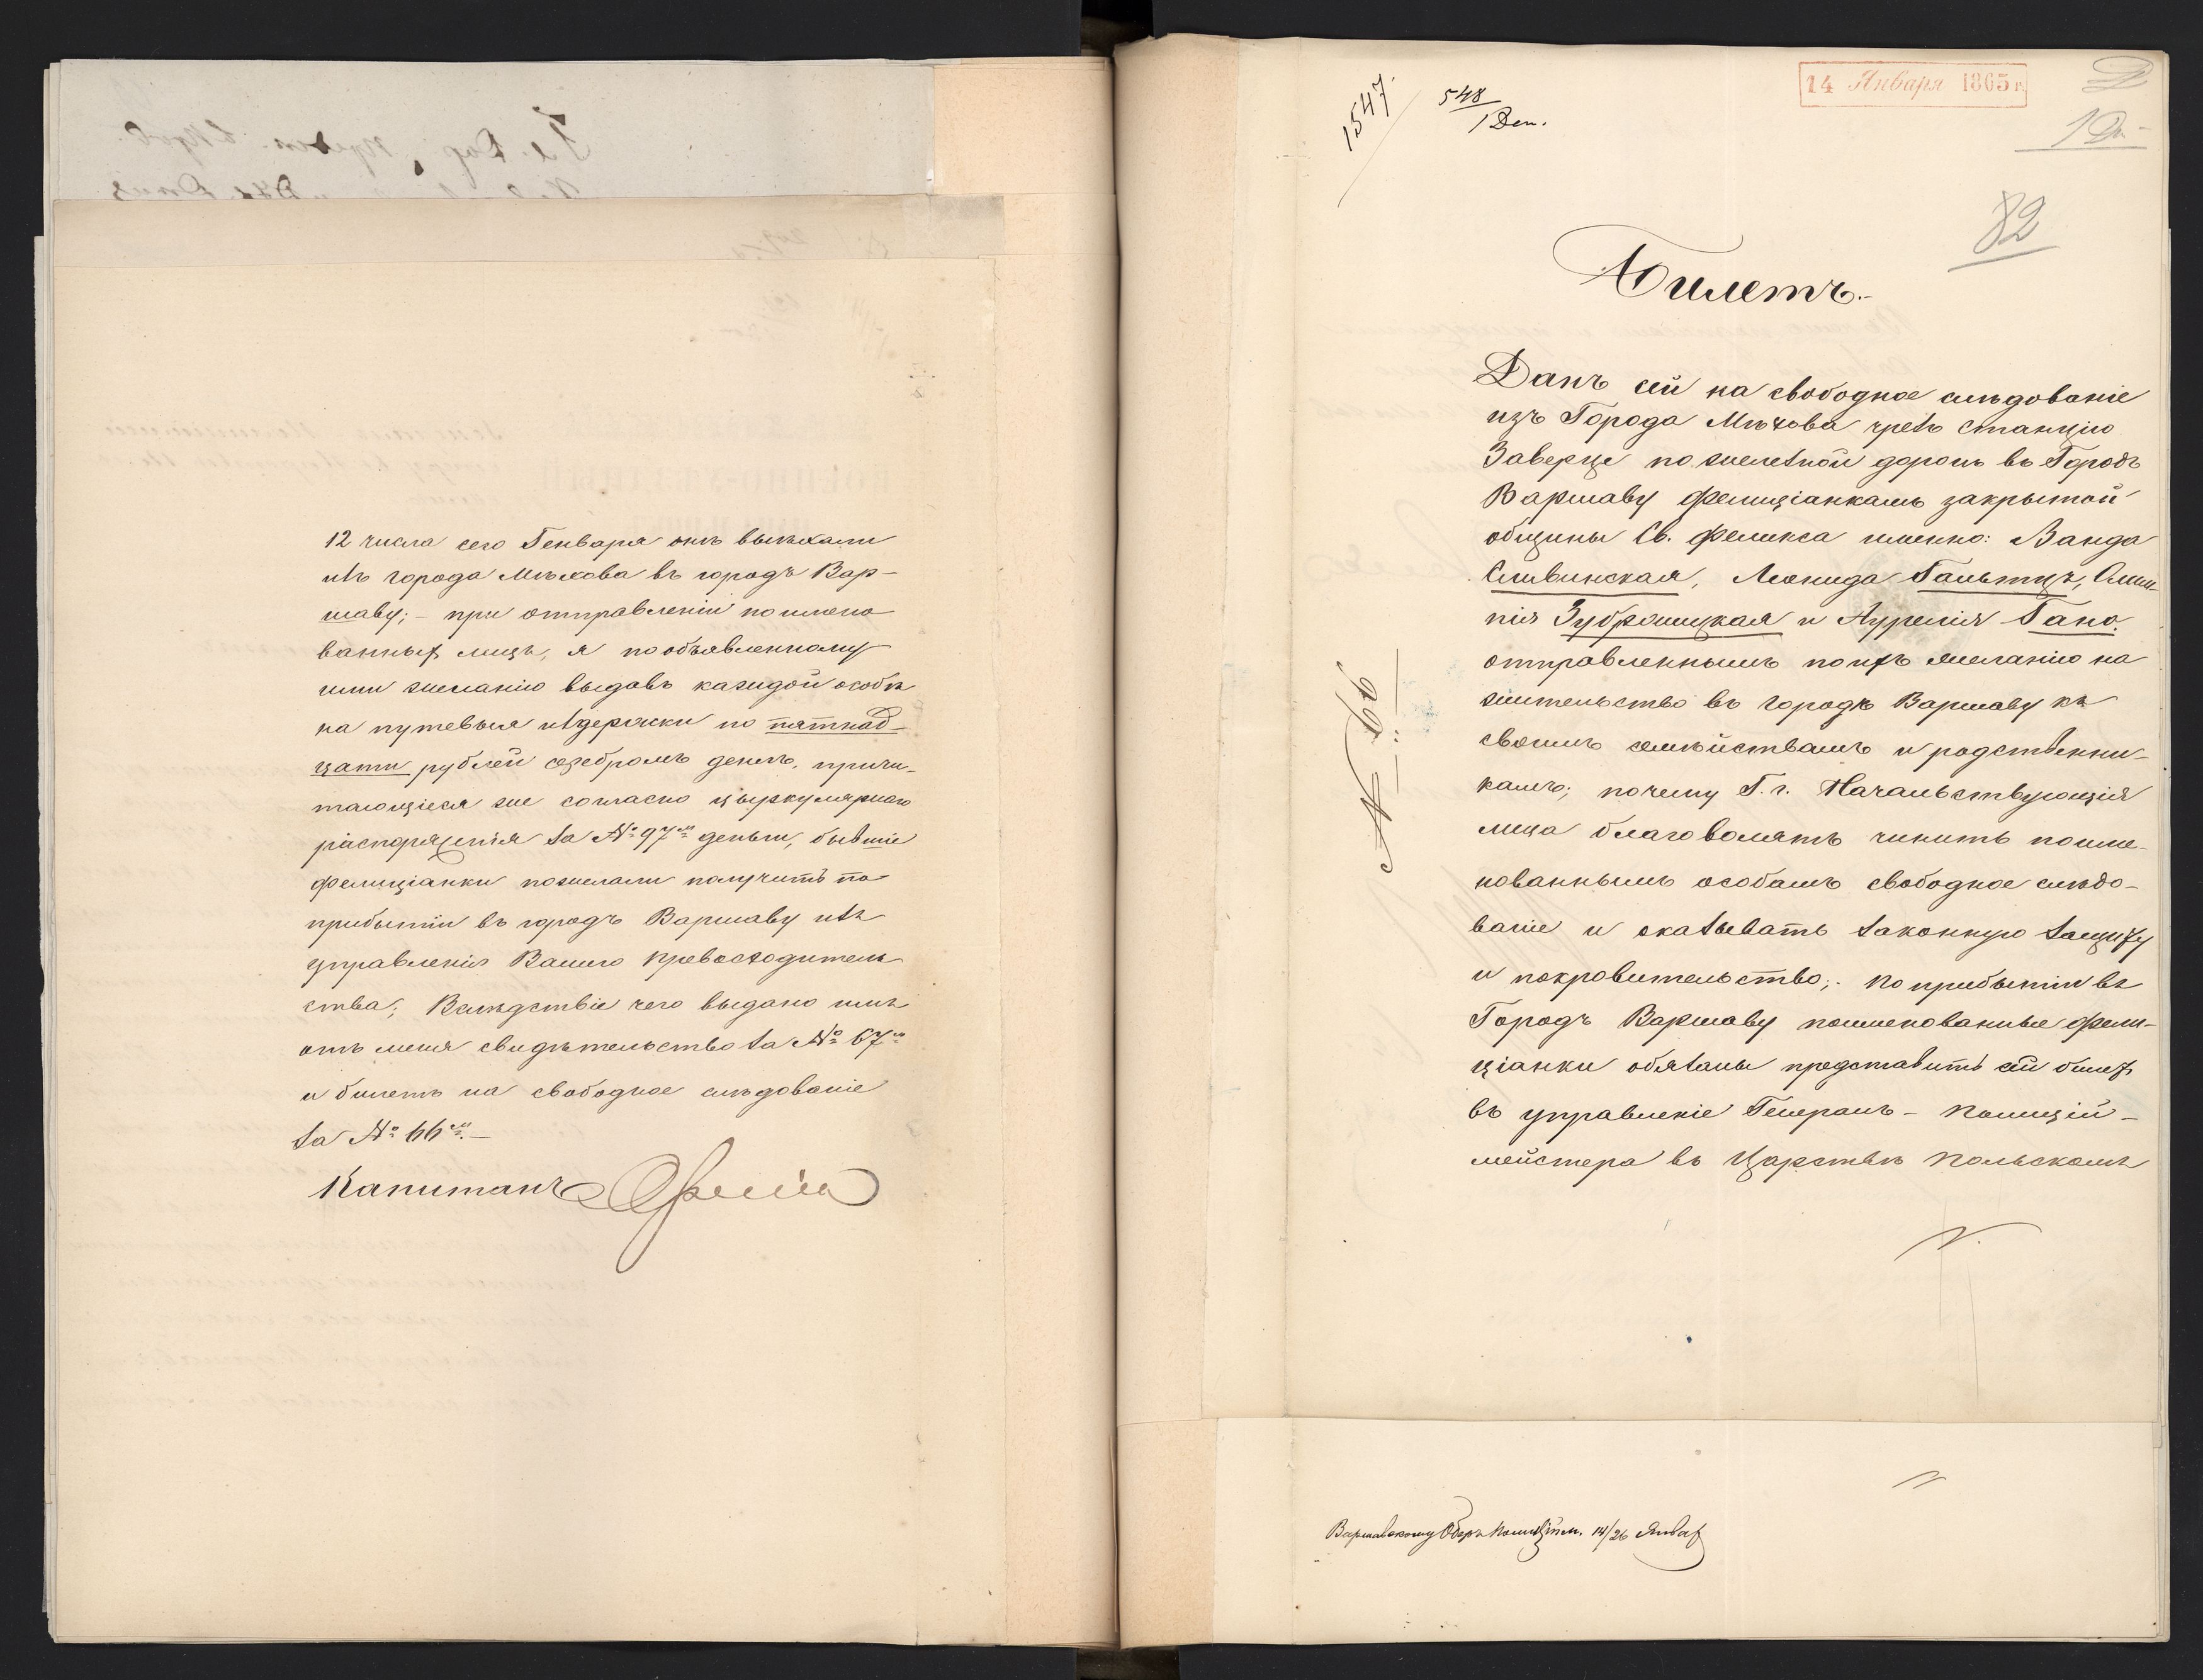 12 числа сего Генваря онѣ выѣхали
изъ города Мѣхова въ городъ Вар-
шаву; – при отправленіи поимено
ванныхъ лицъ, я по объявленному
ими желанію выдавъ каждой особѣ
на путевыя издержки по пятнад-
цати рублей серебромъ денегъ, причи-
тающіеся же согласно циркулярнаго
распоряженія за № 97м деньги, бывшіе
фелиціанки пожелали получить по
прибытіи въ городъ Варшаву изъ
управленія Вашего Превосходитель
ства; Вслѣдствіе чего выдано имъ
отъ меня свидѣтельство за № 67м
и билетъ на свободное слѣдованіе
за № 66м. –
Капитанъ
14 Января 1865 г.
1547
548
1 Деп.
82
Билетъ. –
Данъ сей на свободное слѣдованіе
изъ Города Мѣхова чрезъ станцію
Заверце по железной дорогѣ въ Городъ
Варшаву фелиціанкамъ закрытой
общины Св. Феликса именно: Ванда
Сливинская, Леонида Гальтцъ, Олим-
пія Зубржицкая и Аурелія Гано.
отправленнымъ по ихъ желанію на
жительство въ городъ Варшаву къ
своимъ семѣйствамъ и родственни-
камъ; почему Г. г. Начальствующія
лица благоволятъ чинить поиме-
нованнымъ особамъ свободное слѣдо-
ваніе и оказывать законную защиту
и покровительство; По прибытіи въ
Городъ Варшаву поименованные фели-
ціанки обязаны представить сей билетъ
въ управленіе Генералъ – Полицій-
мейстера въ Царствѣ Польскомъ
№ 66
Варшавскому Оберъ Полиційм. 14/26 Январ